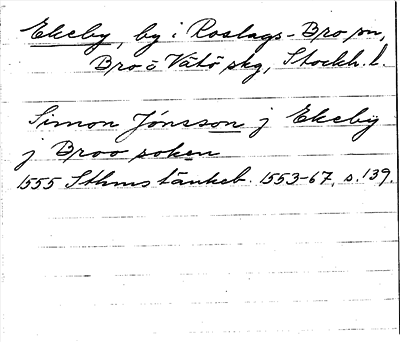 Ekeby, by i Roslags-Bro sn,
Bro o Vätö skg, Stockh. l.
Simon Jónsson j Ekeby
j Broo soken
1555 Sthms tänkeb. 1553-67, s. 139.